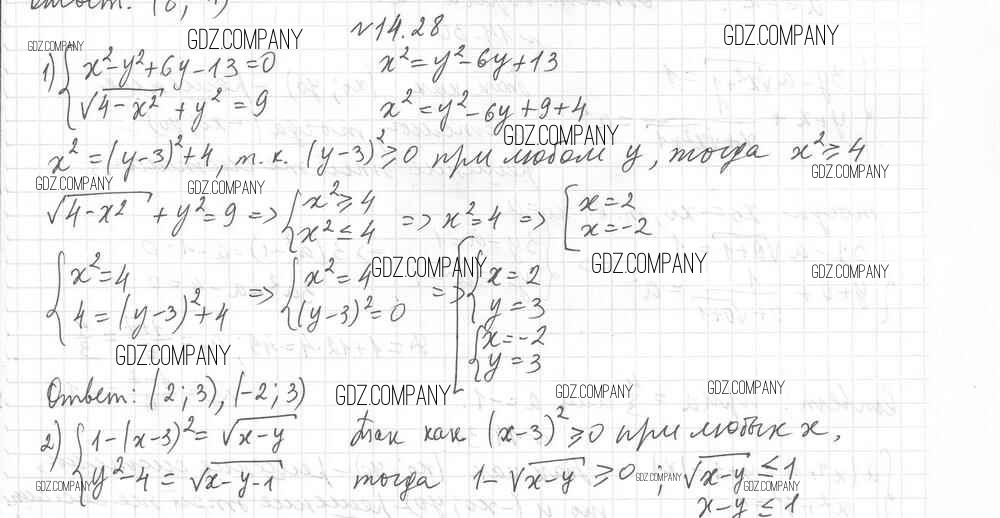 Ответ: (
N 14.28
GDZ.COMPANY GDZ.COMPANY GDZ.COMPANY
1) { x²-y²+6y-13=0 x²=y²-6y+13
√(4-x²) + y² = 9 x²=y²-6y+9+4
GDZ.COMPANY
x² = (y-3)²+4, т.к. (y-3)²≥0 при любом y, тогда x²≥4
GDZ.COMPANY GDZ.COMPANY GDZ.COMPANY
√(4-x²) + y²=9 => { x²≥4 x²≤4 => x²=4 => [ x=2 x=-2
{ x²=4 4=(y-3)²+4 => { x²=4 (y-3)²=0 => [ { x=2 y=3 { x=-2 y=3
GDZ.COMPANY GDZ.COMPANY GDZ.COMPANY
GDZ.COMPANY
Ответ: (2; 3), (-2; 3)
GDZ.COMPANY GDZ.COMPANY GDZ.COMPANY
2) { 1-(x-3)² = √(x-y) Так как (x-3)²≥0 при любых x,
y²-4 = √(x-y-1) тогда 1-√(x-y) ≥0; √(x-y) ≤1
GDZ.COMPANY GDZ.COMPANY GDZ.COMPANY
x-y ≤ 1